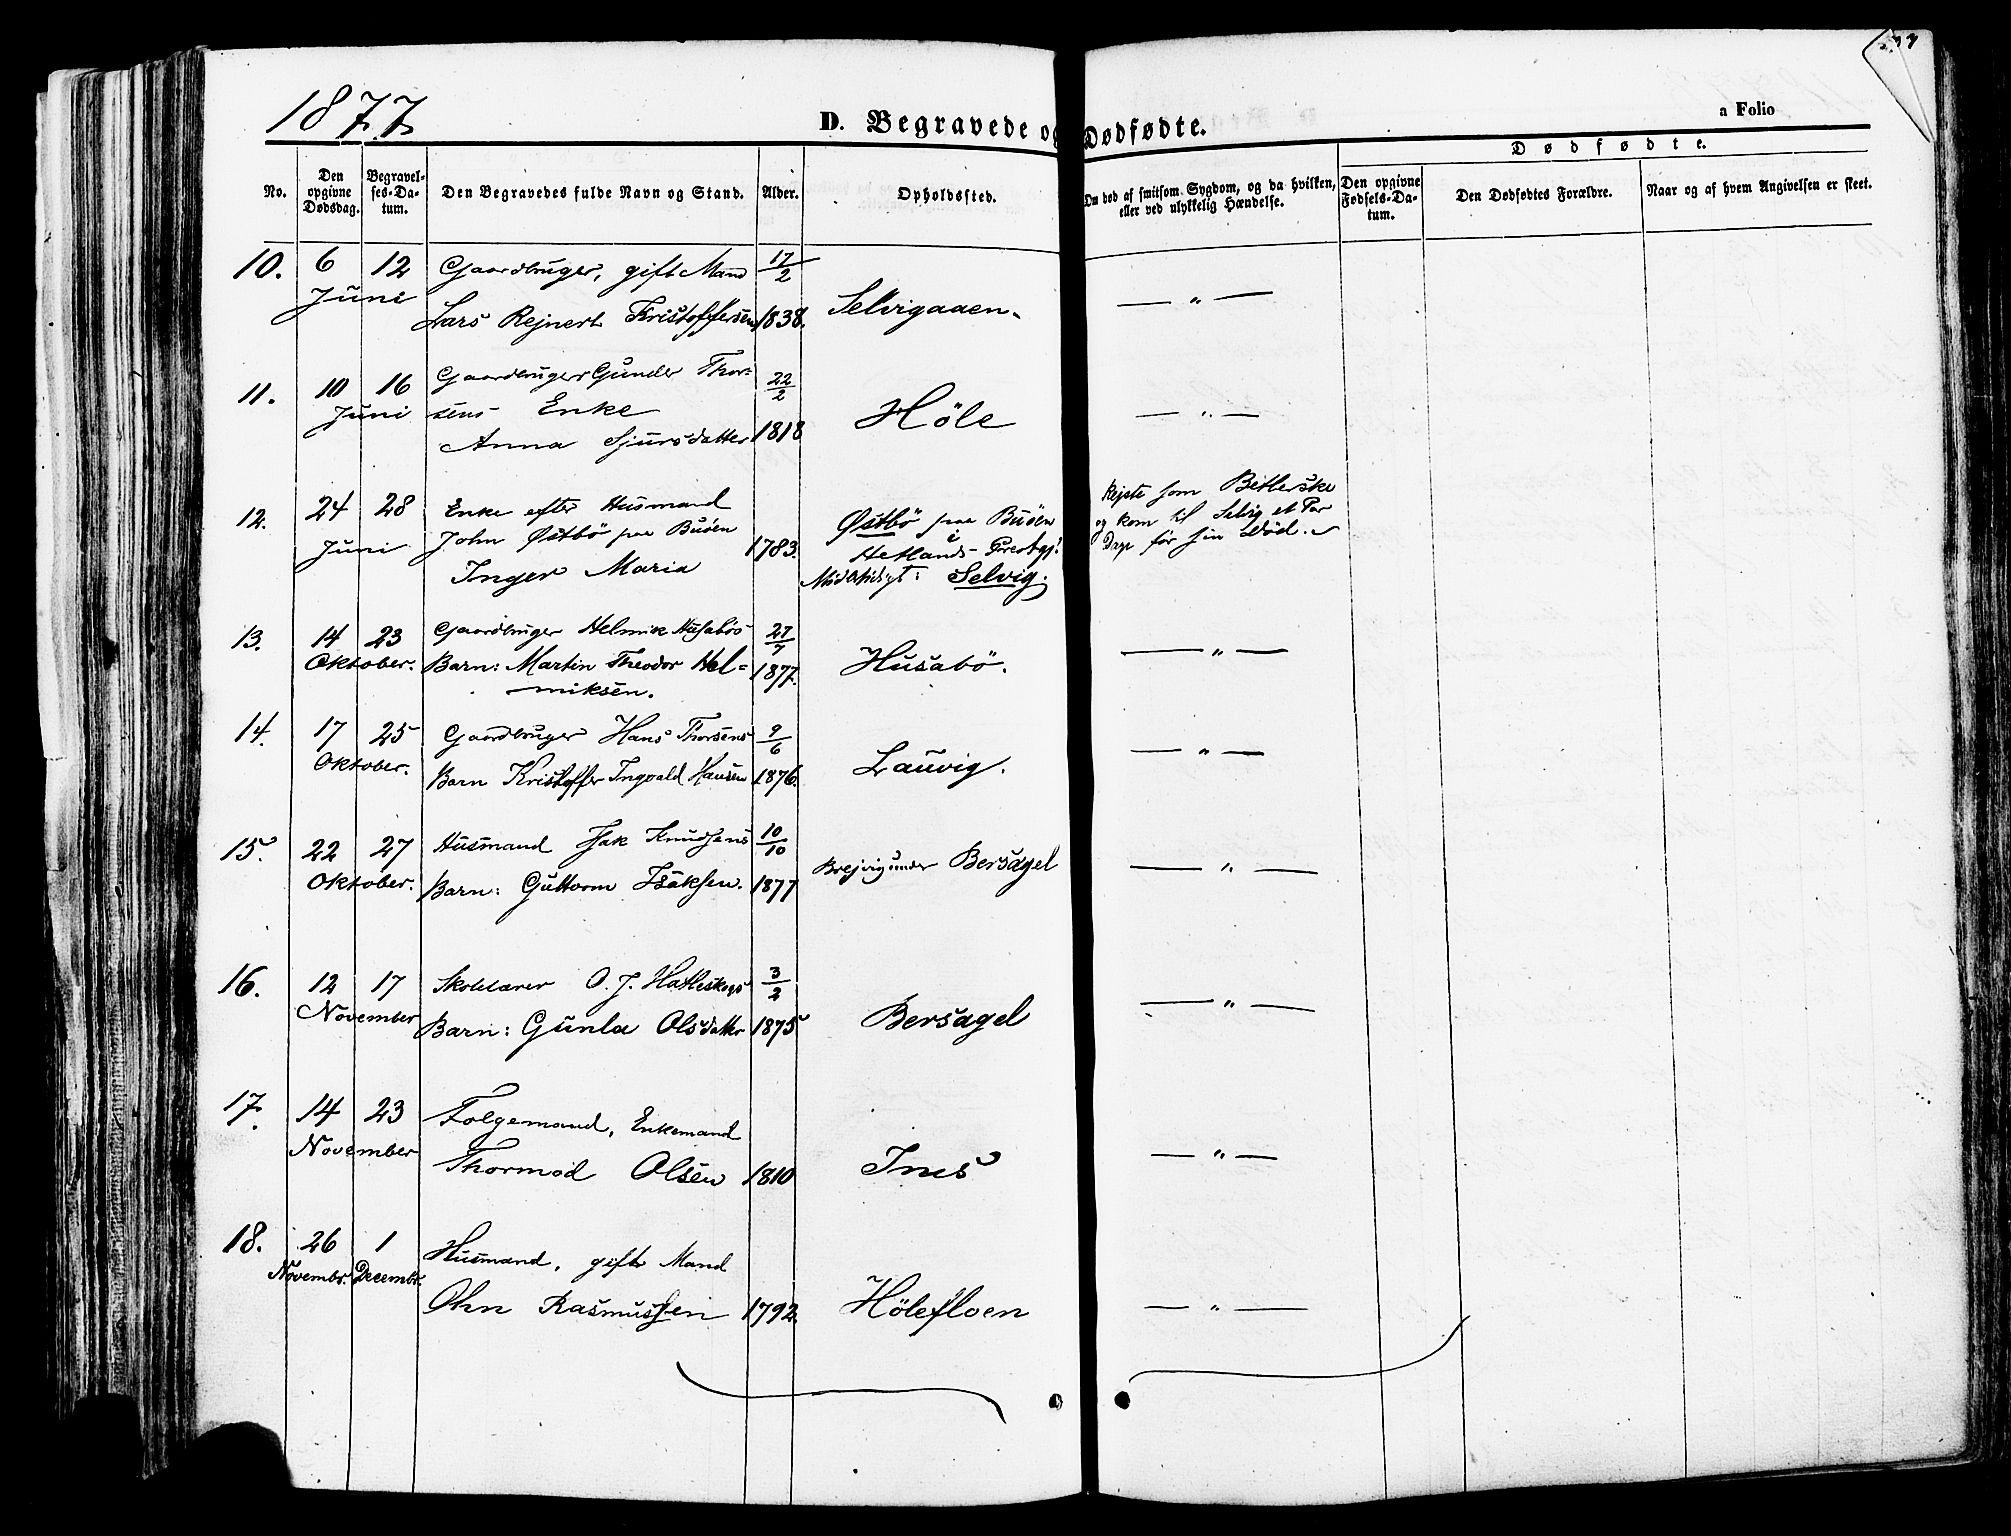 1877
D. Begravede og Dødfødte.
a Folio
No.
Den opgivne Dødsdag.
Begravelses-Datum.
Den Begravedes fulde Navn og Stand.
Alder.
Opholdssted.
Om død af smitsom Sygdom, og da hvilken,
eller ved ulykkelig Hændelse.
Dødfødte.
Den opgivne Fødsels-Datum.
Den Dødfødtes Forældre.
Naar og af hvem Angivelsen er skeet.
10. 6 12 Gaardbruger, gift Mand 17/2
Juni Lars Rejnert Kristoffersen 1838. Selvigaaen. — " —
11. 10 16 Gaardbruger Gunder Thor= 22/2
Juni sens Enke Höle — " —
Anna Sjursdatter 1818
12. 24 28 Enke efter Husmand Østbö paa Buöen Rejste som Betlerske
Juni John Østbö paa Buöen 1783. i Hetlands Præstegj. og kom til Selvig et Par
Inger Maria Midlertidigt: Selvig. Dage før sin Død.
13. 14 23 Gaardbruger Helmik Husabös 27/7
Oktober. Barn: Martin Theodor Hel= 1877. Husabö. — " —
miksen.
14. 17 25 Gaardbruger Hans Thorsens 9/6
Oktober. Barn Kristoffer Ingvald Hansen 1876. Lauvig. — " —
15. 22 27 Husmand Isak Knudsens 10/10
Oktober. Barn: Guttorm Isaksen. 1877 Brejvig under Bersagel — " —
16. 12 17 Skolelærer O. J. Hatleskogs 3/2
November Barn: Gunla Olsdatter 1875 Bersagel — " —
17. 14 23 Folgemand, Enkemand
November Thormod Olsen 1810 Ims — " —
18. 26 1 Husmand, gift Mand
Novembr. Decembr. Ohn Rasmussen 1792. Hölefloen — " —